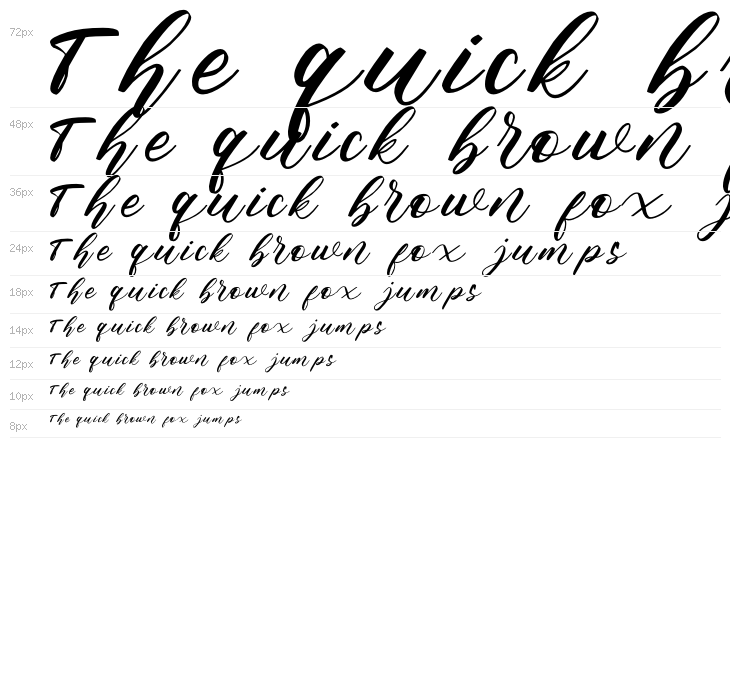 72px The quick br
48px The quick brown
36px The quick brown fox j
24px The quick brown fox jumps
18px The quick brown fox jumps
14px The quick brown fox jumps
12px The quick brown fox jumps
10px The quick brown fox jumps
8px The quick brown fox jumps